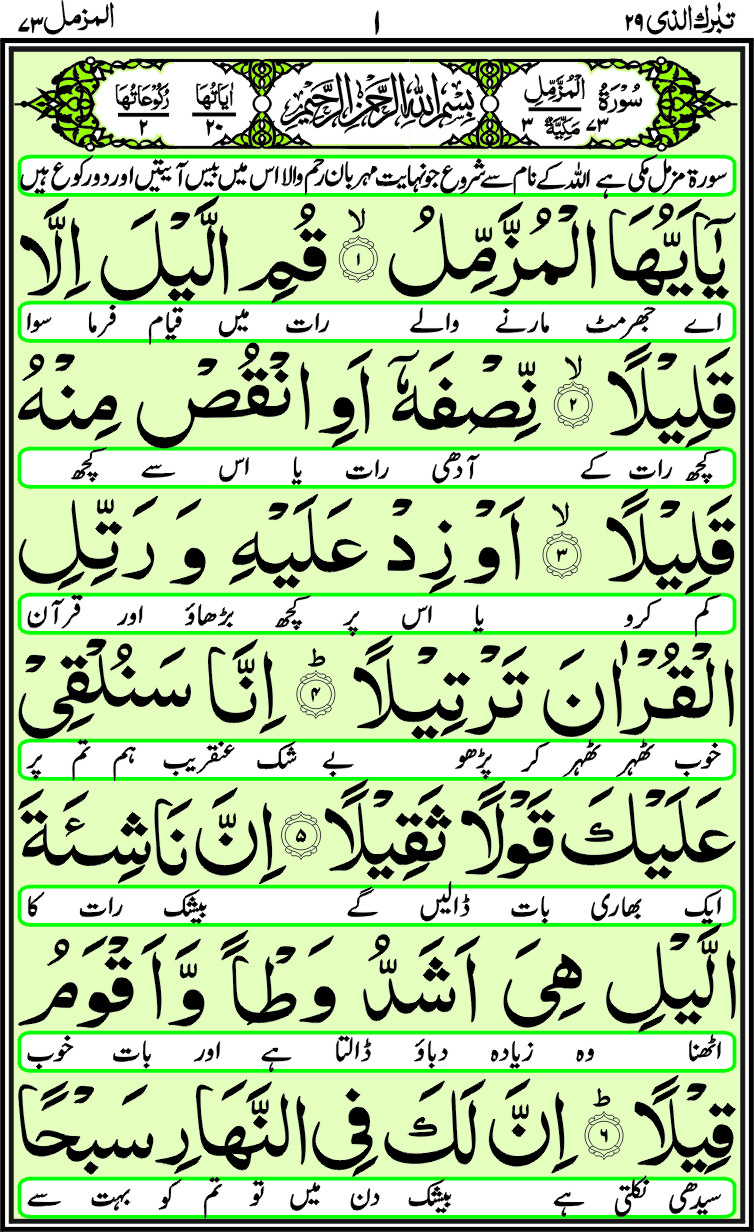 تبٰرك الذی ٢٩ ١ المزمل ٧٣
سُوْرَةُ الْمُزَّمِّلِ ٧٣ مَكِّيَّةٌ ٣ بِسْمِ اللهِ الرَّحْمٰنِ الرَّحِيْمِ اٰيَاتُهَا ٢٠ رُكُوْعَاتُهَا ٢
سورۃ مزمل مکی ہے اللہ کے نام سے شروع جو نہایت مہربان رحم والا اس میں بیس آیتیں اور دو رکوع ہیں
يٰۤاَيُّهَا الْمُزَّمِّلُ ۙ﴿١﴾ قُمِ الَّيْلَ اِلَّا
اے جھرمٹ مارنے والے رات میں قیام فرما سوا
قَلِيْلًا ۙ﴿٢﴾ نِّصْفَهٗۤ اَوِ انْقُصْ مِنْهُ
کچھ رات کے آدھی رات یا اس سے کچھ
قَلِيْلًا ۙ﴿٣﴾ اَوْ زِدْ عَلَيْهِ وَ رَتِّلِ
کم کرو یا اس پر کچھ بڑھاؤ اور قرآن
الْقُرْاٰنَ تَرْتِيْلًا ؕ﴿۴﴾ اِنَّا سَنُلْقِيْ
خوب ٹھہر ٹھہر کر پڑھو بے شک عنقریب ہم تم پر
عَلَيْكَ قَوْلًا ثَقِيْلًا ﴿۵﴾ اِنَّ نَاشِئَةَ
ایک بھاری بات ڈالیں گے بیشک رات کا
الَّيْلِ هِيَ اَشَدُّ وَطْاً وَّ اَقْوَمُ
اٹھنا وہ زیادہ دباؤ ڈالتا ہے اور بات خوب
قِيْلًا ؕ﴿۶﴾ اِنَّ لَكَ فِي النَّهَارِ سَبْحًا
سیدھی نکلتی ہے بیشک دن میں تو تم کو بہت سے